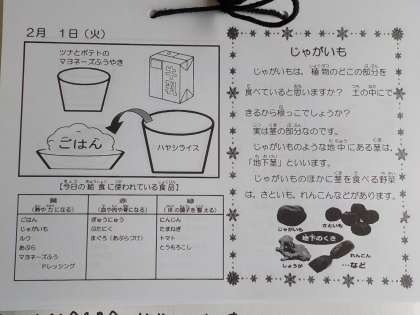 2月 1日（火）
ツナとポテトの
マヨネーズふうやき
ごはん
ハヤシライス
【今日の給食に使われている食品】
黄
（熱や力になる）
赤
（血や肉や骨になる）
緑
（体の調子を整える）
ごはん
じゃがいも
ルウ
あぶら
マヨネーズふう
ドレッシング
ぎゅうにゅう
ぶたにく
まぐろ（あぶらづけ）
にんじん
たまねぎ
トマト
とうもろこし
じゃがいも
じゃがいもは、植物のどこの部分を
食べていると思いますか？ 土の中にで
きるから根っこでしょうか？
実は茎の部分なのです。
じゃがいものような地中にある茎は、
「地下茎」といいます。
じゃがいものほかに茎を食べる野菜
は、さといも、れんこんなどがあります。
じゃがいも
さといも
地下のくき
しょうが
れんこん
…など